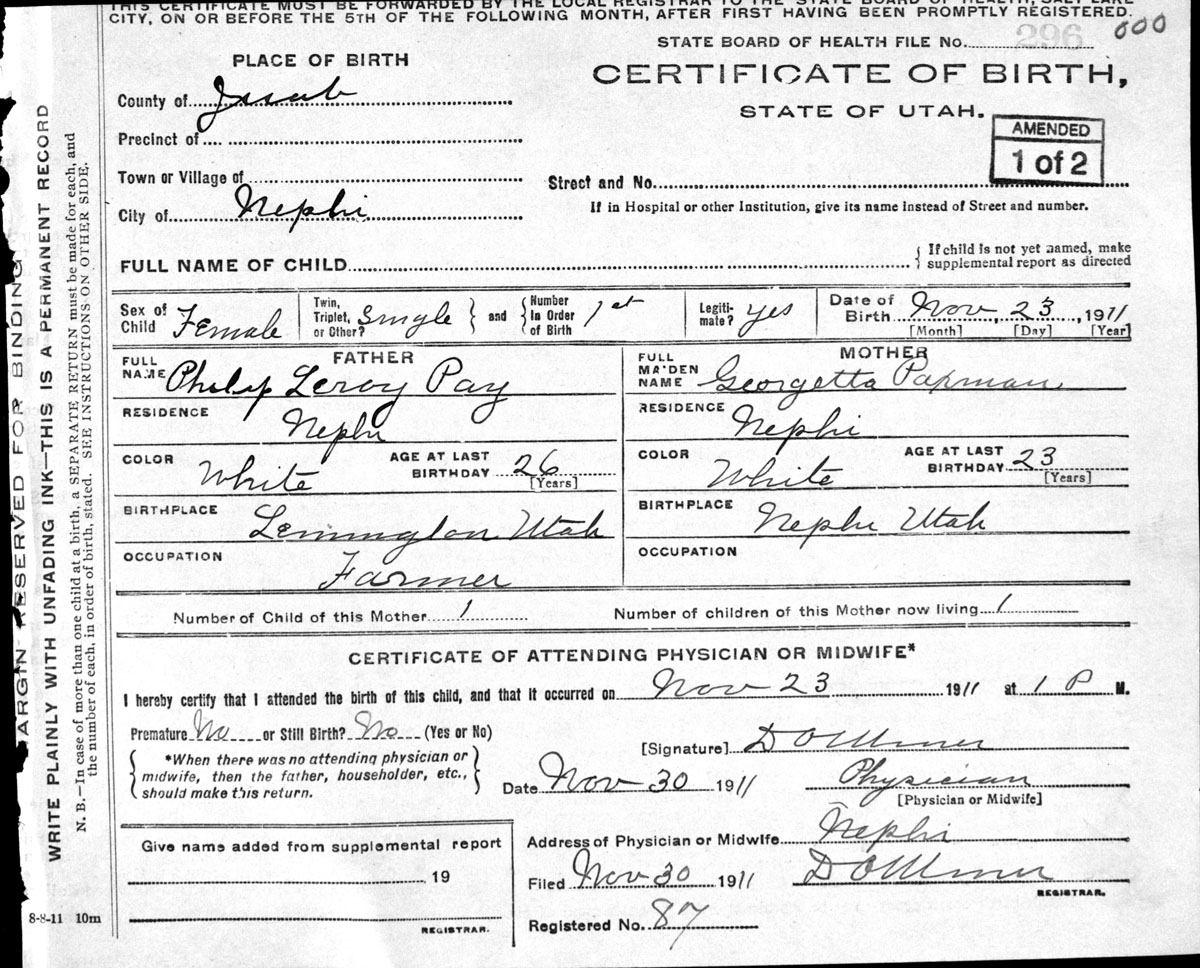 THIS CERTIFICATE MUST BE FORWARDED BY THE LOCAL REGISTRAR TO THE STATE BOARD OF HEALTH, SALT LAKE
CITY, ON OR BEFORE THE 5TH OF THE FOLLOWING MONTH, AFTER FIRST HAVING BEEN PROMPTLY REGISTERED.
000
STATE BOARD OF HEALTH FILE No. 296
PLACE OF BIRTH
CERTIFICATE OF BIRTH,
STATE OF UTAH.
County of Juab
AMENDED
1 of 2
Precinct of
Town or Village of
Street and No.
City of Nephi
If in Hospital or other Institution, give its name instead of Street and number.
FULL NAME OF CHILD
{ If child is not yet named, make
supplemental report as directed
Sex of Child Female
Twin, Triplet, or Other? Single } and { Number In Order of Birth 1st
Legiti-mate? yes
Date of Birth Nov 23, 1911
[Month] [Day] [Year]
FATHER
FULL NAME Philip Leroy Pay
RESIDENCE Nephi
COLOR White AGE AT LAST BIRTHDAY 26 [Years]
BIRTHPLACE Lemington Utah
OCCUPATION Farmer
MOTHER
FULL MAIDEN NAME Georgetta
RESIDENCE Nephi
COLOR White AGE AT LAST BIRTHDAY 23 [Years]
BIRTHPLACE Nephi Utah
OCCUPATION
Number of Child of this Mother 1 Number of children of this Mother now living 1
CERTIFICATE OF ATTENDING PHYSICIAN OR MIDWIFE*
I hereby certify that I attended the birth of this child, and that it occurred on Nov 23 1911 at 1 P M.
Premature No or Still Birth? No (Yes or No)
{ *When there was no attending physician or
midwife, then the father, householder, etc.,
should make this return. }
[Signature]
Date Nov 30 1911 Physician
[Physician or Midwife]
Address of Physician or Midwife Nephi
Filed Nov 30 1911
REGISTRAR.
Registered No. 87
Give name added from supplemental report
19
REGISTRAR.
8-8-11 10m
ARGIN RESERVED FOR BINDING
WRITE PLAINLY WITH UNFADING INK—THIS IS A PERMANENT RECORD
N. B.—In case of more than one child at a birth, a SEPARATE RETURN must be made for each, and
the number of each, in order of birth, stated. SEE INSTRUCTIONS ON OTHER SIDE.